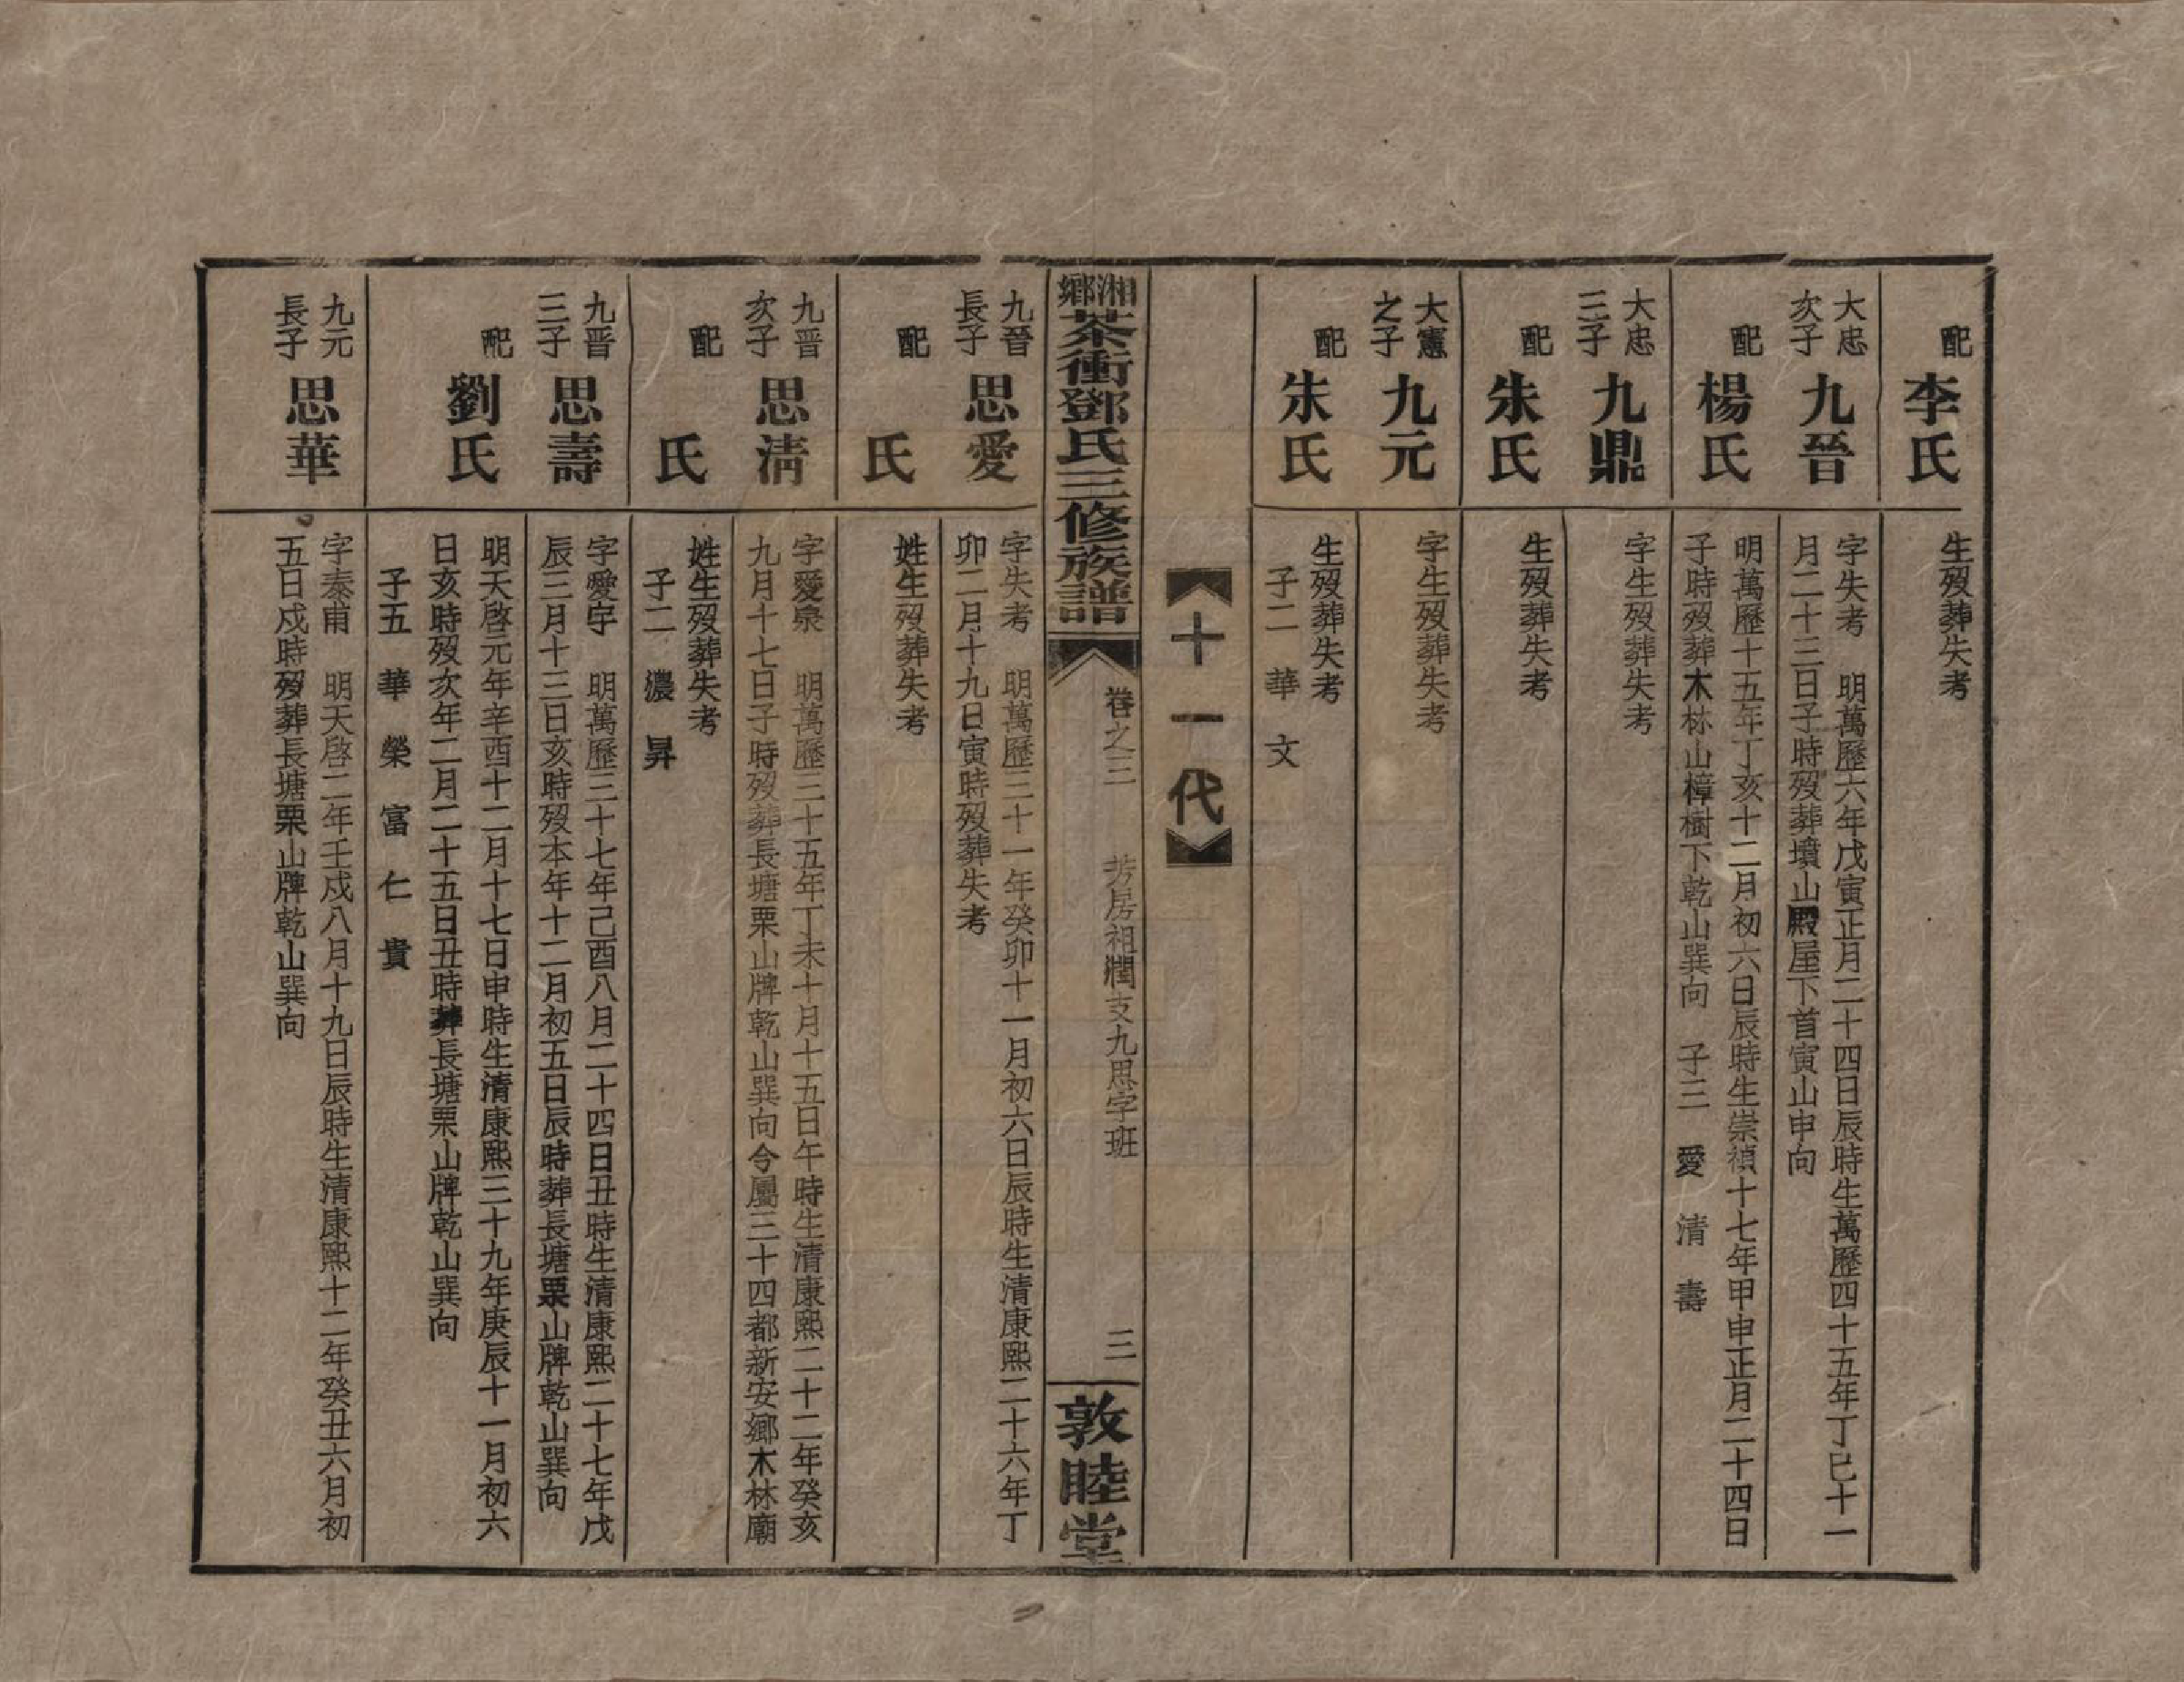 配
李氏
生歿葬失考
大忠
次子
九晉
字失考　明萬歷六年戊寅正月二十四日辰時生萬歷四十五年丁巳十一
月二十三日子時歿葬墳山殿屋下首寅山申向
配
楊氏
明萬歷十五年丁亥十二月初六日辰時生崇禎十七年甲申正月二十四日
子時歿葬木林山樟樹下乾山巽向　子三　愛　清　壽
大忠
三子
九鼎
字生歿葬失考
配
朱氏
生歿葬失考
大憲
之子
九元
字生歿葬失考
配
朱氏
生歿葬失考
子二　華　文
十一代
湘鄉茶衝鄧氏三修族譜
卷之三　芳房祖潤支九思字班
三
敦睦堂
九晉
長子
思愛
字失考　明萬歷三十一年癸卯十一月初六日辰時生清康熙二十六年丁
卯二月十九日寅時歿葬失考
配
氏
姓生歿葬失考
九晋
次子
思清
字愛泉　明萬歷三十五年丁未十月十五日午時生清康熙二十二年癸亥
九月十七日子時歿葬長塘栗山牌乾山巽向今屬三十四都新安鄉木林廟
配
氏
姓生歿葬失考
子二　濃　昇
九晋
三子
思壽
字愛宇　明萬歷三十七年己酉八月二十四日丑時生清康熙二十七年戊
辰三月十三日亥時歿本年十二月初五日辰時葬長塘栗山牌乾山巽向
配
劉氏
明天啓元年辛酉十二月十七日申時生清康熙三十九年庚辰十一月初六
日亥時歿次年二月二十五日丑時葬長塘栗山牌乾山巽向
子五　華　榮　富　仁　貴
九元
長子
思華
字泰甫　明天啓二年壬戍八月十九日辰時生清康熙十二年癸丑六月初
五日戍時歿葬長塘栗山牌乾山巽向